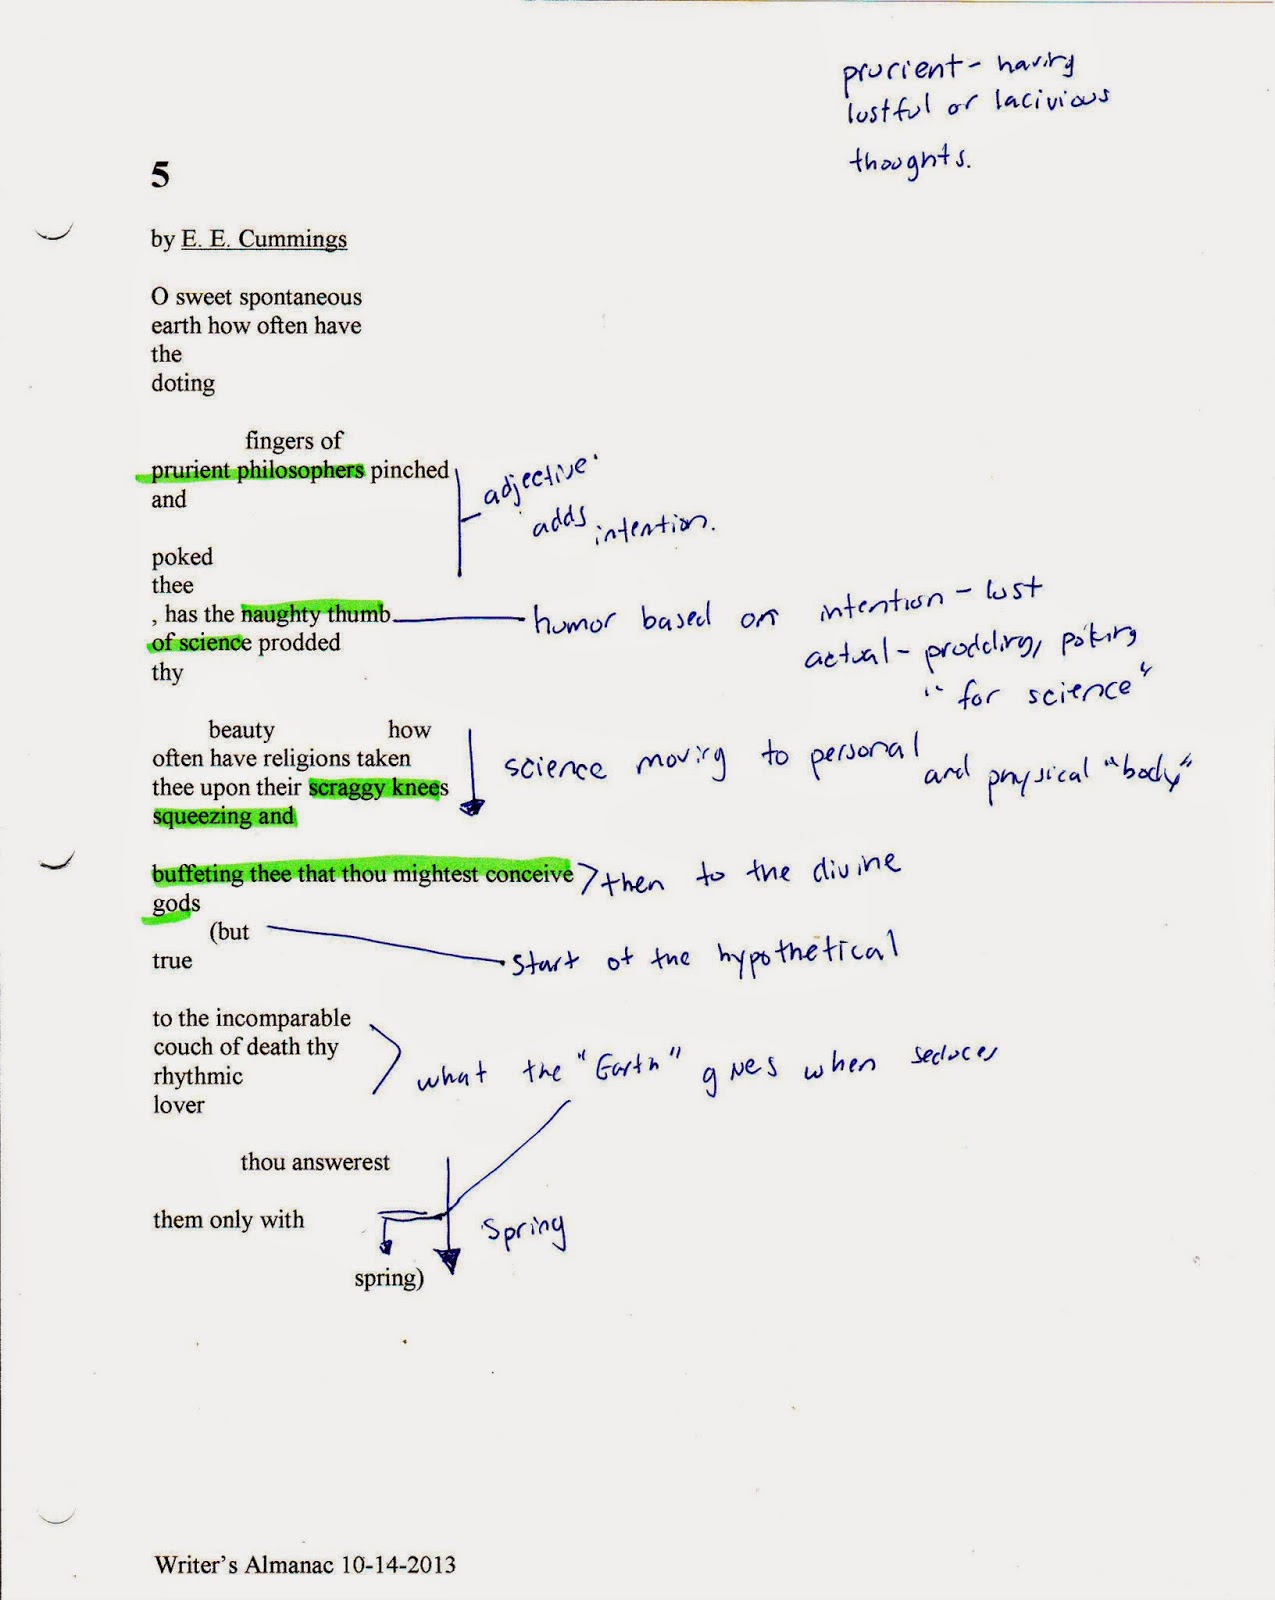 prurient - having
lustful or lacivious
thoughts.
5
by E. E. Cummings
O sweet spontaneous
earth how often have
the
doting
fingers of
prurient philosophers pinched
and
adjective
adds intention.
poked
thee
, has the naughty thumb
of science prodded
thy
humor based on intention - lust
actual - prodding, poking
"for science"
beauty how
often have religions taken
thee upon their scraggy knees
squeezing and
science moving to personal
and physical "body"
buffeting thee that thou mightest conceive
gods
then to the divine
(but
true
start of the hypothetical
to the incomparable
couch of death thy
rhythmic
lover
what the "Earth" gives when seduces
thou answerest
them only with
spring
spring)
Writer's Almanac 10-14-2013